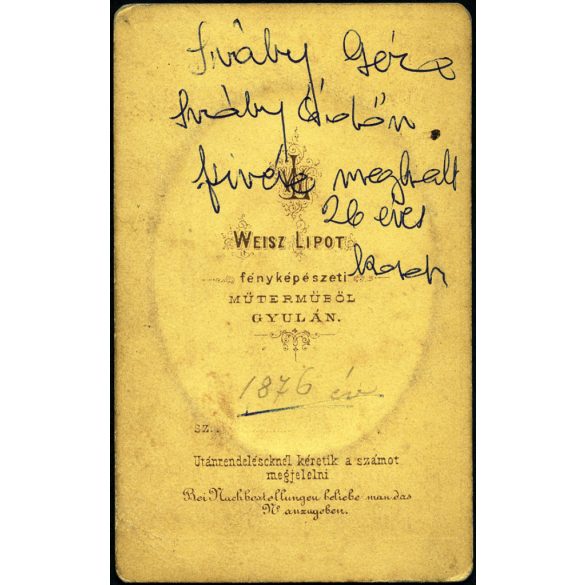 Sváby Géza
Sváby Ödön
fivére meghalt
26 éves
L
WEISZ LIPOT
fényképészeti
MŰTERMŰBŐL
GYULÁN.
1876 év.
SZ.
Utánrendeléseknél kéretik a számot
megjelelni
Bei Nachbestellungen beliebe man das
No anzugeben.